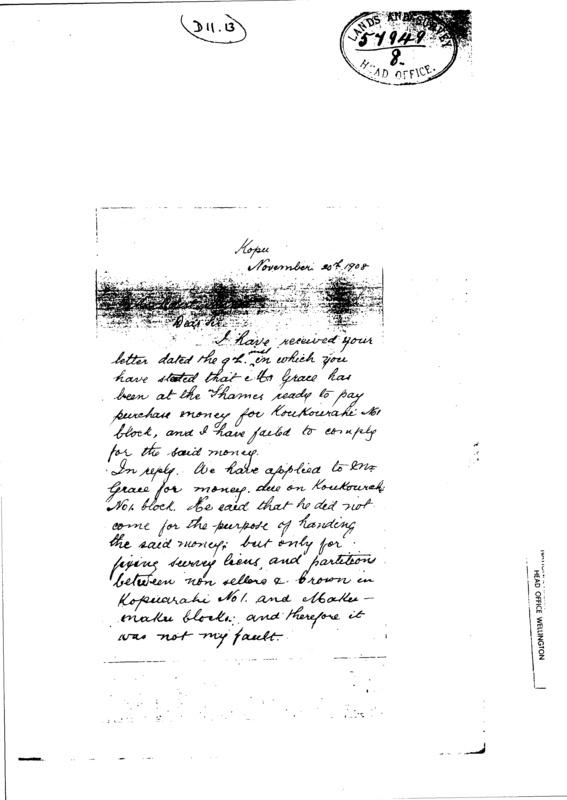 D 11. 13
LANDS AND SURVEY
57949
8.
HEAD OFFICE.
Kopu
November 20th 1908
Dear Sir
I have received your
letter dated the 9th inst in which you
have stated that Mr Grace has
been at the Thames ready to pay
purchase money for Koukourahi No1
block, and I have failed to comply
for the said money.
In reply. We have applied to Mr
Grace for money. due on Koukourahi
No1. block. He said that he did not
come for the purpose of handing
the said money; but only for
fixing survey liens, and partition
between non sellers & crown in
Kopuarahi No1. and Maku-
maku blocks; and therefore it
was not my fault.
HEAD OFFICE WELLINGTON